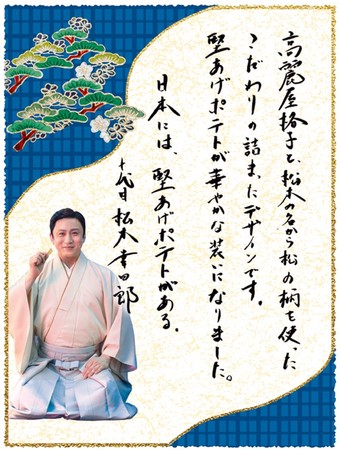 高麗屋格子と、松本の名から松の柄を使った
こだわりの詰まったデザインです。
堅あげポテトが華やかな装いになりました。
日本には、堅あげポテトがある。
十代目 松本幸四郎